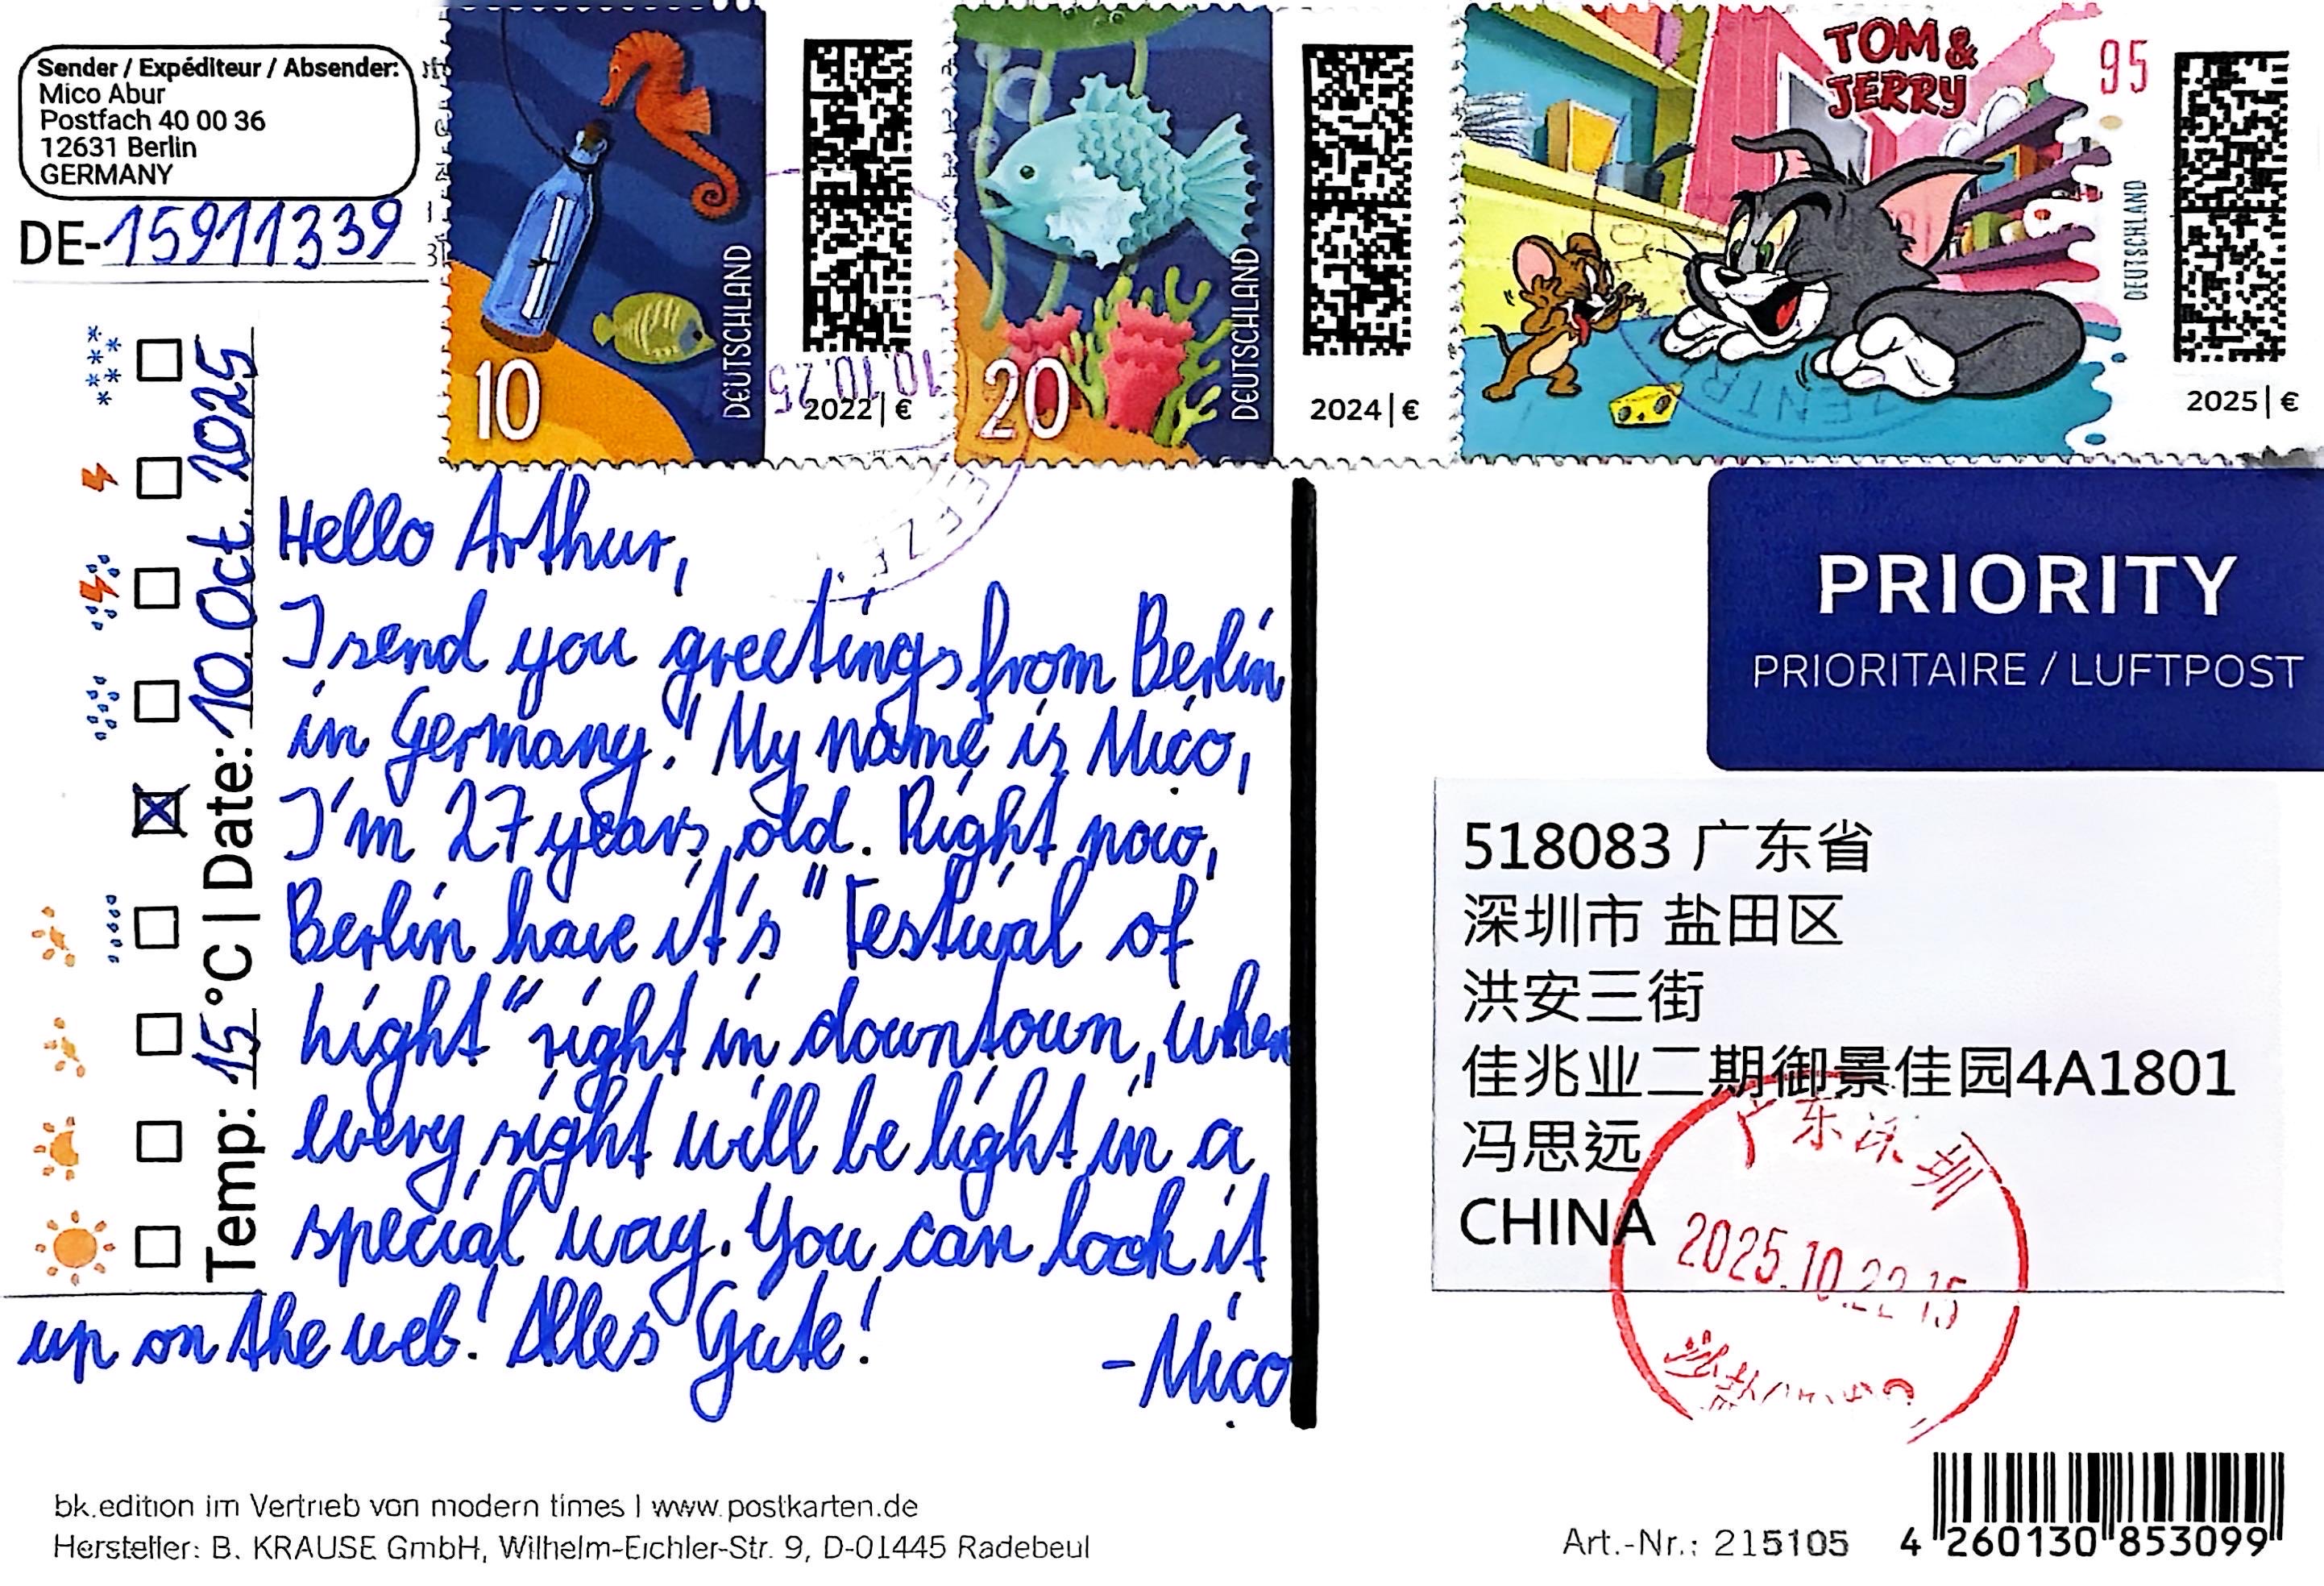 Sender / Expéditeur / Absender:
Mico Abur
Postfach 40 00 36
12631 Berlin
GERMANY
DE-15911339
10
DEUTSCHLAND
2022 | €
10.10.25
20
DEUTSCHLAND
2024 | €
TOM &
JERRY
95
DEUTSCHLAND
2025 | €
Temp: 15 °C | Date: 10. Oct. 2025
Hello Arthur,
I send you greetings from Berlin
in Germany! My name is Mico,
I'm 27 years old. Right now,
Berlin have it's "Festival of
hight" right in downtown, when
every sight will be light in a
special way. You can look it
up on the web! Alles Gute!
-Mico
PRIORITY
PRIORITAIRE / LUFTPOST
518083 广东省
深圳市 盐田区
洪安三街
佳兆业二期御景佳园4A1801
冯思远
CHINA
广东深圳
2025.10.22 15
bk.edition im Vertrieb von modern times | www.postkarten.de
Hersteller: B. KRAUSE GmbH, Wilhelm-Eichler-Str. 9, D-01445 Radebeul
Art.-Nr.: 215105
4 260130 853099